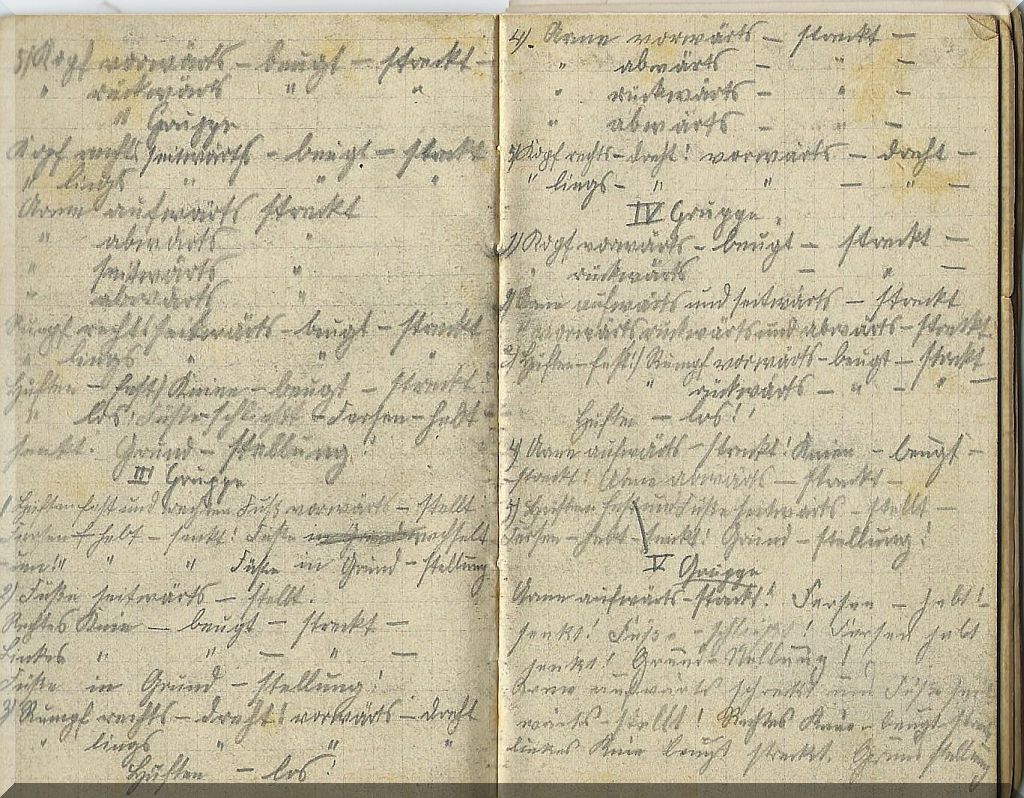 5) Kopf vorwärts – beugt – streckt –
" rückwärts " "
II Gruppe
Kopf rechts seitwärts – beugt – streckt
" lings " " "
Arme aufwärts streckt
" abwärts "
" seitwärts "
" abwärts "
Rumpf rechts seitwärts – beugt – streckt
" lings " " "
Hüften – fest! Kniee – beugt – streckt!
" los! Füße – schließt – Fersen – hebt –
senkt. Grund – stellung!
III Gruppe
1 Hüften fest und rechten Fuß vorwärts – stellt
Fersen – hebt – senkt! Füße wechselt
um!! " " Füße in Grund – stellung
2) Füße seitwärts – stellt.
Rechtes Knie – beugt – streckt –
Linkes " " – " –
Füße in Grund – stellung!
3) Rumpf rechts – dreht! vorwärts – dreht
" lings " " "
Hüften – los!
4). Arme vorwärts – streckt –
" abwärts – " –
" rückwärts – " –
" abwärts – " –
7) Kopf rechts – dreht! vorwärts – dreht –
" lings – " " – " –
IV Gruppe.
1) Kopf vorwärts – beugt – streckt –
" rückwärts – " –
2) Arme aufwärts und seitwärts – streckt
vorwärts rückwärts und abwärts – streckt
3) Hüften – fest! Rumpf vorwärts – beugt – streckt
" rückwärts – " – " –
Hüften – los!!
4) Arme aufwärts – streckt! Kniee – beugt –
streckt! Arme abwärts – streckt –
5) Hüften fest und Füße seitwärts – stellt –
Fersen – hebt – senkt! Grund – stellung!
V Gruppe
Arme aufwärts – streckt! Fersen – hebt!
senkt! Füße – schließt! Fersen hebt
senkt! Grund – stellung!
Arme aufwärts streckt und Füße seit
wärts – stellt! Rechtes Knie – beugt – streckt
linkes Knie beugt streckt. Grund stellung